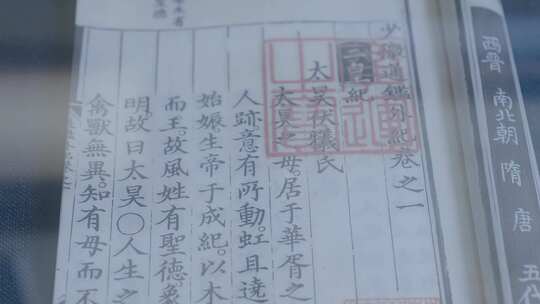 西晉 南北朝 隋 唐 五代
少微通鑑外紀卷之一
三皇紀
太昊伏羲氏
太昊之母。居于華胥之
人跡意有所動。虹且遶
始娠。生帝于成紀。以木
而王。故風姓有聖德。象
明。故曰太昊〇人生之
禽獸無異。知有母而不